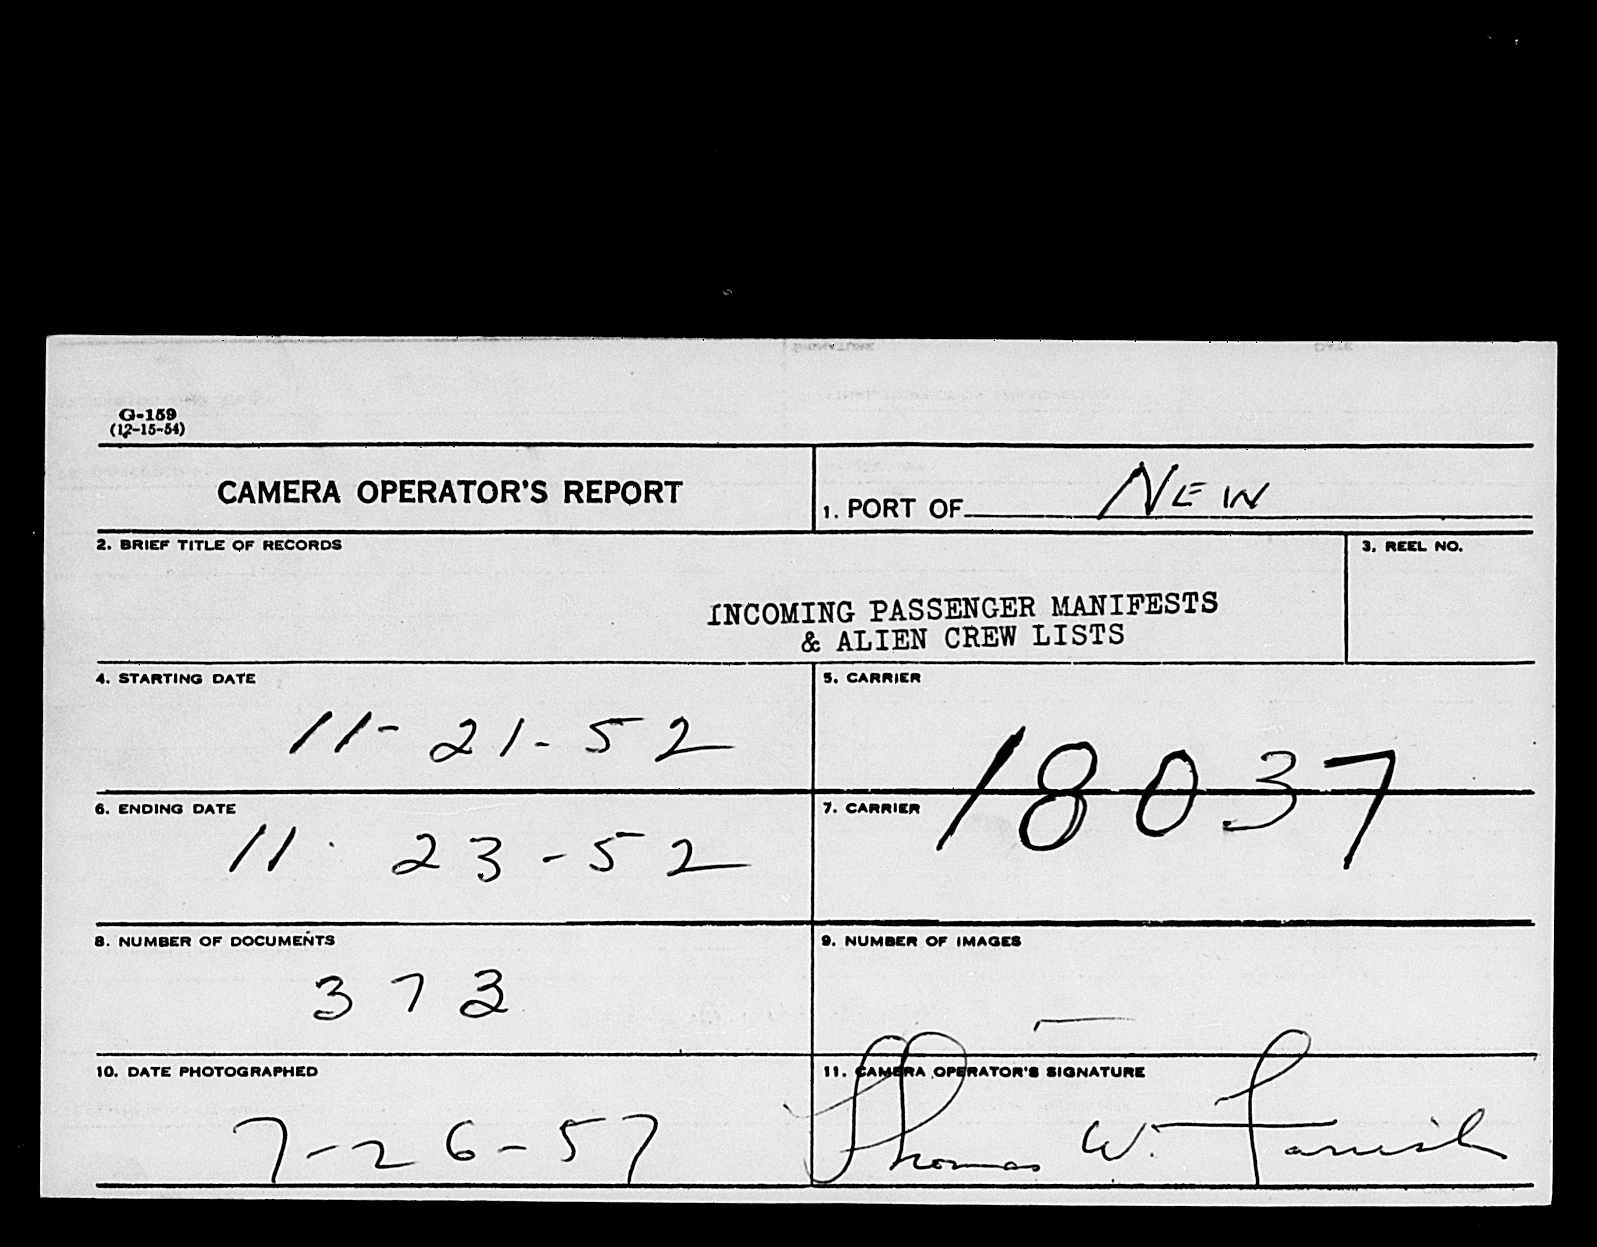 G-159
(12-15-54)
CAMERA OPERATOR'S REPORT
1. PORT OF NEW
2. BRIEF TITLE OF RECORDS
3. REEL NO.
INCOMING PASSENGER MANIFESTS
& ALIEN CREW LISTS
4. STARTING DATE
11-21-52
5. CARRIER
18037
6. ENDING DATE
11-23-52
7. CARRIER
8. NUMBER OF DOCUMENTS
373
9. NUMBER OF IMAGES
10. DATE PHOTOGRAPHED
7-26-57
11. CAMERA OPERATOR'S SIGNATURE
Thomas W.